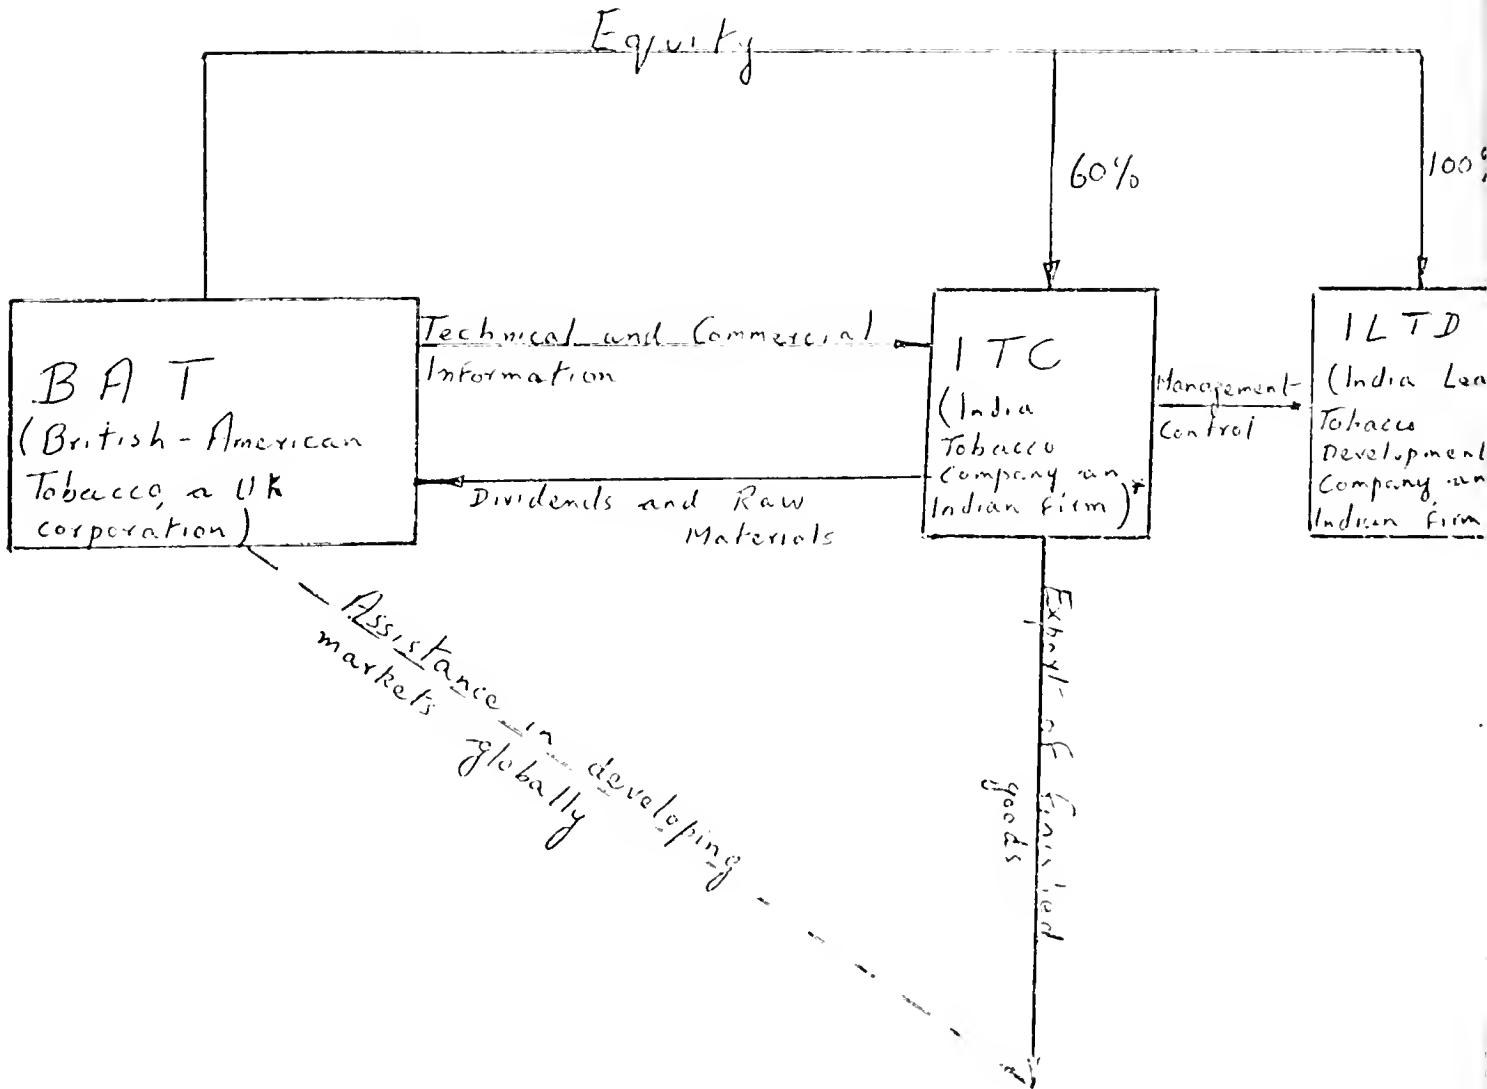 Equity
60%
100%
BAT
(British-American
Tobacco, a UK
corporation)
Technical and Commercial
Information
Dividends and Raw
Materials
ITC
(India
Tobacco
Company an
Indian Firm)*
Management
Control
ILTD
(India Lea
Tobacco
Development
Company an
Indian Firm
Assistance in developing
markets globally
Export of finished
goods